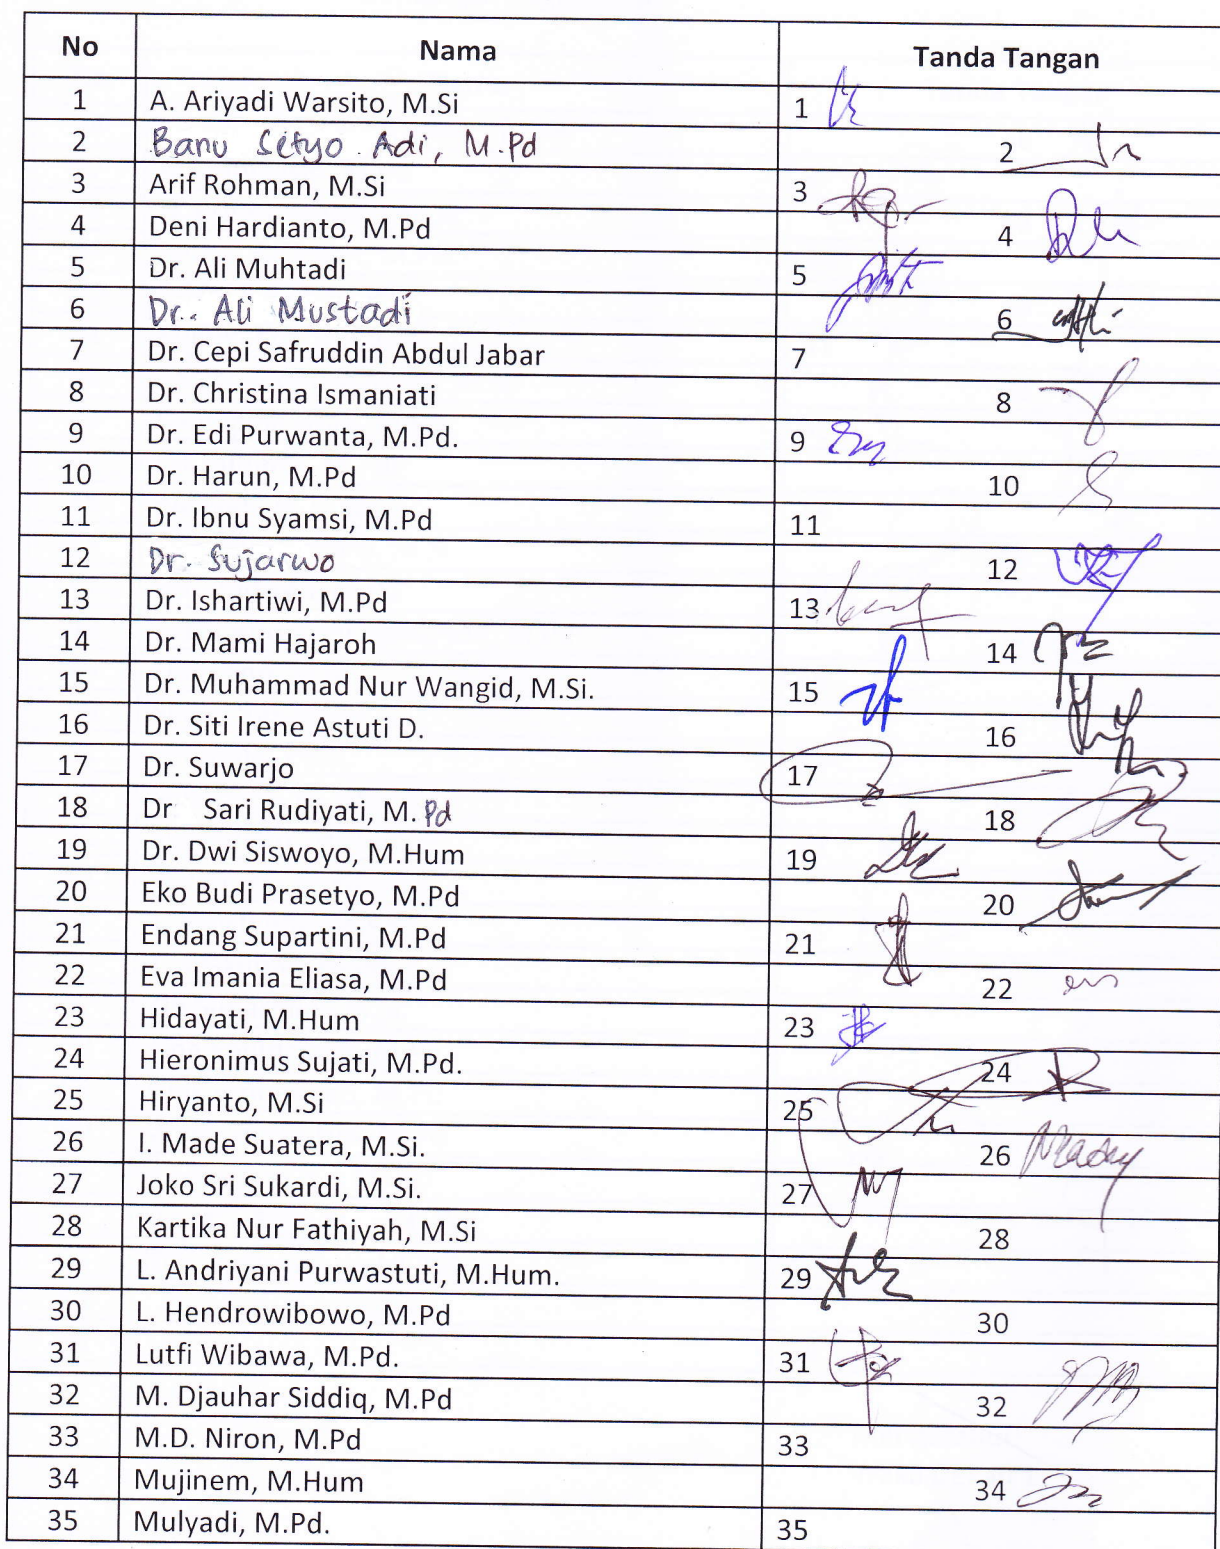 No Nama Tanda Tangan
1 A. Ariyadi Warsito, M.Si 1
2 Banu Setyo Adi, M.Pd 2
3 Arif Rohman, M.Si 3
4 Deni Hardianto, M.Pd 4
5 Dr. Ali Muhtadi 5
6 Dr. Ali Mustadi 6
7 Dr. Cepi Safruddin Abdul Jabar 7
8 Dr. Christina Ismaniati 8
9 Dr. Edi Purwanta, M.Pd. 9
10 Dr. Harun, M.Pd 10
11 Dr. Ibnu Syamsi, M.Pd 11
12 Dr. Sujarwo 12
13 Dr. Ishartiwi, M.Pd 13
14 Dr. Mami Hajaroh 14
15 Dr. Muhammad Nur Wangid, M.Si. 15
16 Dr. Siti Irene Astuti D. 16
17 Dr. Suwarjo 17
18 Dr Sari Rudiyati, M.Pd 18
19 Dr. Dwi Siswoyo, M.Hum 19
20 Eko Budi Prasetyo, M.Pd 20
21 Endang Supartini, M.Pd 21
22 Eva Imania Eliasa, M.Pd 22
23 Hidayati, M.Hum 23
24 Hieronimus Sujati, M.Pd. 24
25 Hiryanto, M.Si 25
26 I. Made Suatera, M.Si. 26
27 Joko Sri Sukardi, M.Si. 27
28 Kartika Nur Fathiyah, M.Si 28
29 L. Andriyani Purwastuti, M.Hum. 29
30 L. Hendrowibowo, M.Pd 30
31 Lutfi Wibawa, M.Pd. 31
32 M. Djauhar Siddiq, M.Pd 32
33 M.D. Niron, M.Pd 33
34 Mujinem, M.Hum 34
35 Mulyadi, M.Pd. 35